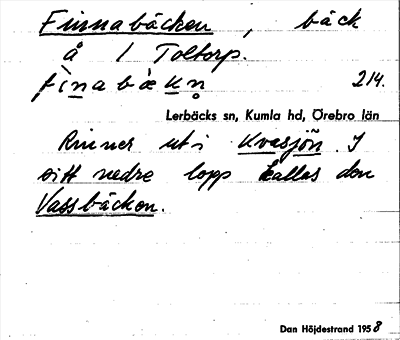 Finnabäcken, bäck
å 1 Toltorp.
fìnabäkn̥ 214.
Lerbäcks sn, Kumla hd, Örebro län
Rinner ut i Kvasjöñ. I
sitt nedre lopp kallas den
Vassbäcken.
Dan Höjdestrand 1958